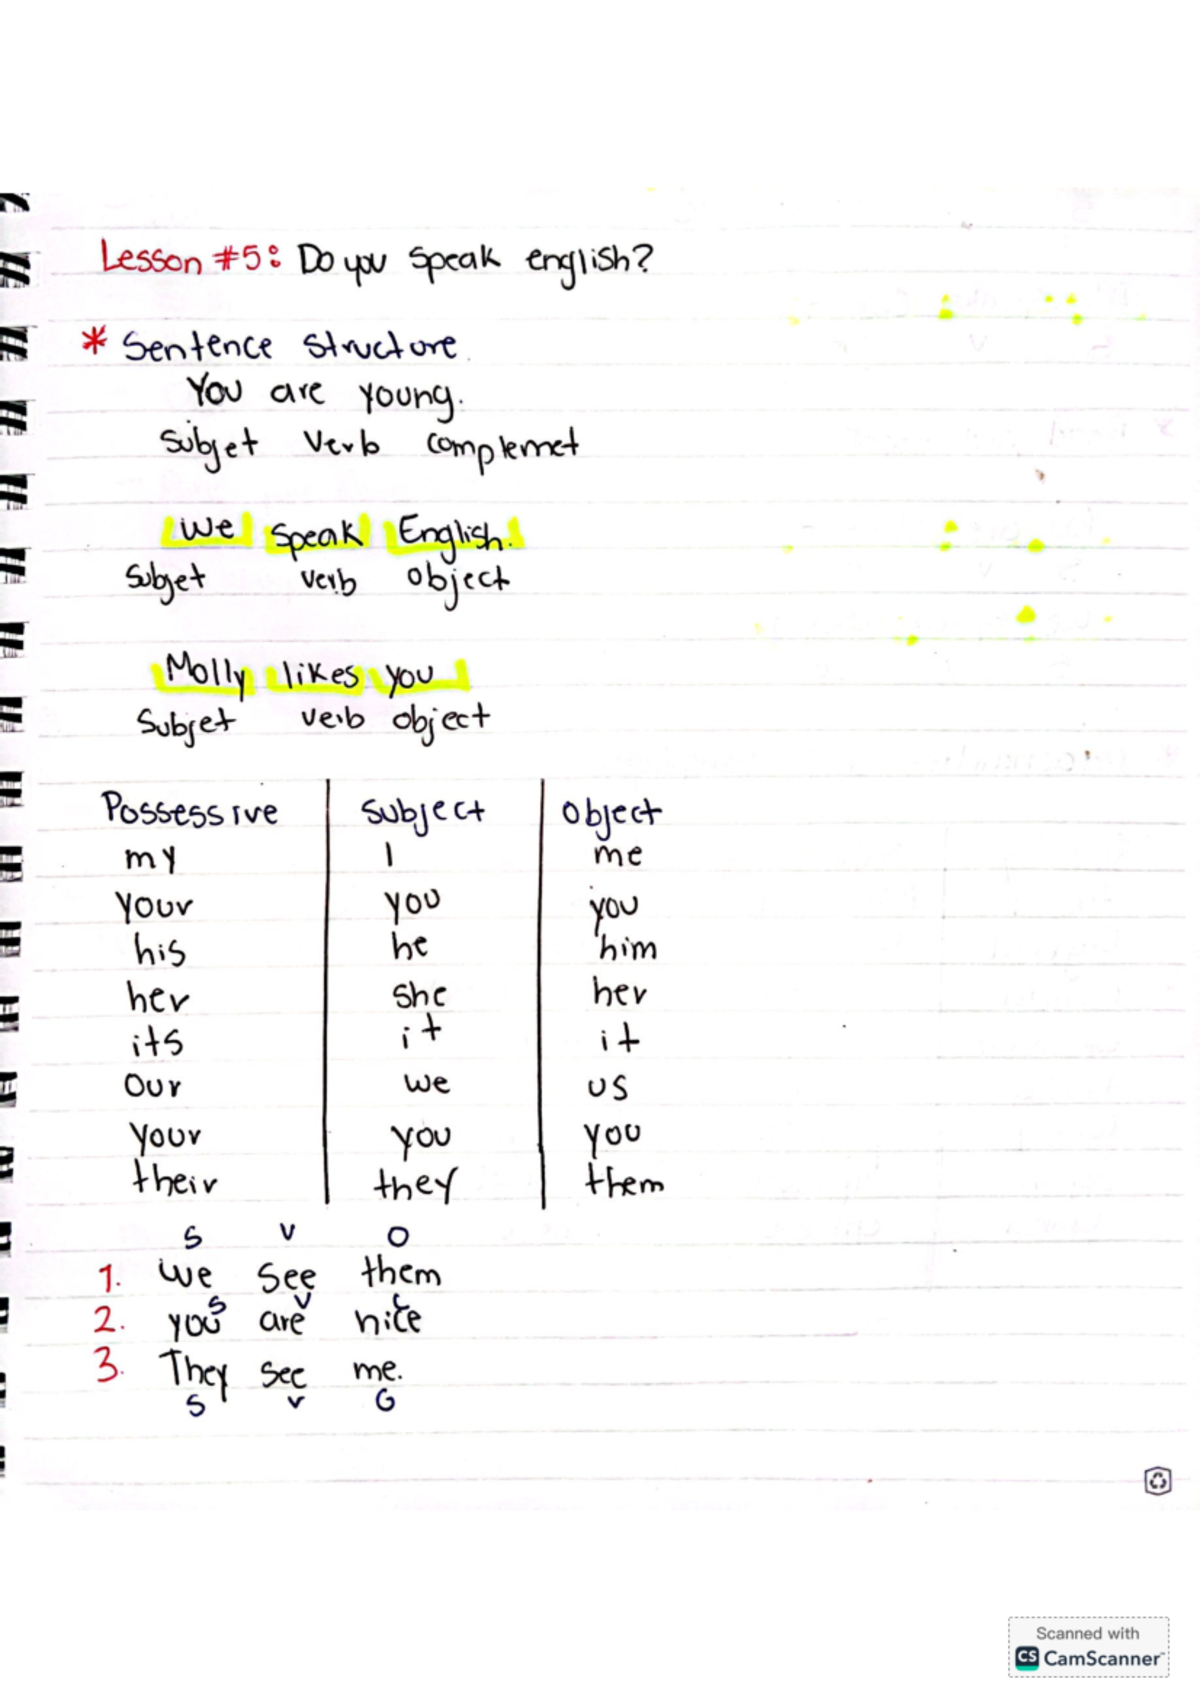 Lesson #5: Do you speak english?
* Sentence structure.
You are young.
Subjet verb complemet
We speak English.
Subjet verb object
Molly likes you
Subjet verb object
Possessive subject object
my I me
your you you
his he him
her she her
its it it
our we us
your you you
their they them
S V O
1. We see them
S V C
2. you are nice
3. They see me.
S V O
Scanned with
CS CamScanner